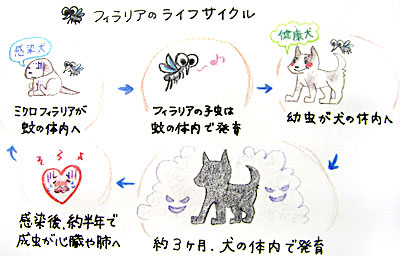 フィラリアのライフサイクル
感染犬
ミクロフィラリアが
蚊の体内へ
フィラリアの子虫は
蚊の体内で発育
健康犬
幼虫が犬の体内へ
約3ヶ月、犬の体内で発育
感染後、約半年で
成虫が心臓や肺へ